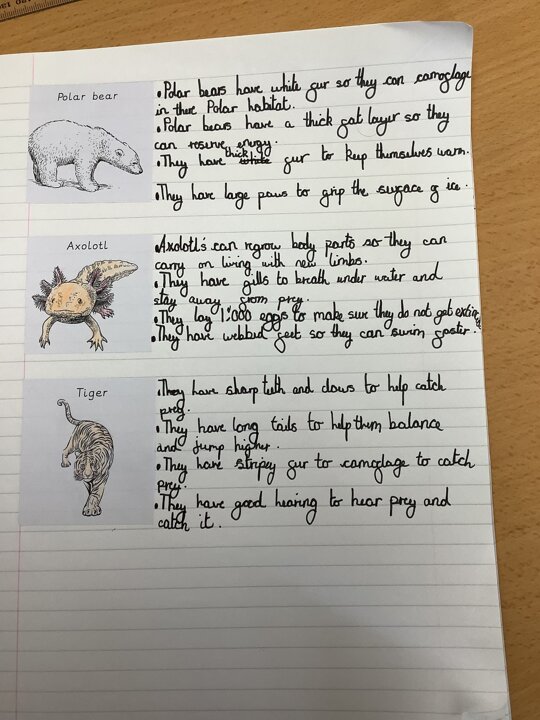 Polar bear
• Polar bears have white fur so they can camoglage
in there Polar habitat.
• Polar bears have a thick fat layer so they
can reserve energy.
• They have thick white fur to keep themselves warm.
• They have large paws to grip the surface of ice.
Axolotl
• Axolotl's can regrow body parts so they can
carry on living with new limbs.
• They have gills to breath under water and
stay away from prey.
• They lay 1'000 eggs to make sure they do not get extinct
• They have webbed feet so they can swim faster.
Tiger
• They have sharp teeth and claws to help catch
prey.
• They have long tails to help them balance
and jump higher.
• They have stripey fur to camoglage to catch
prey.
• They have good hearing to hear prey and
catch it.